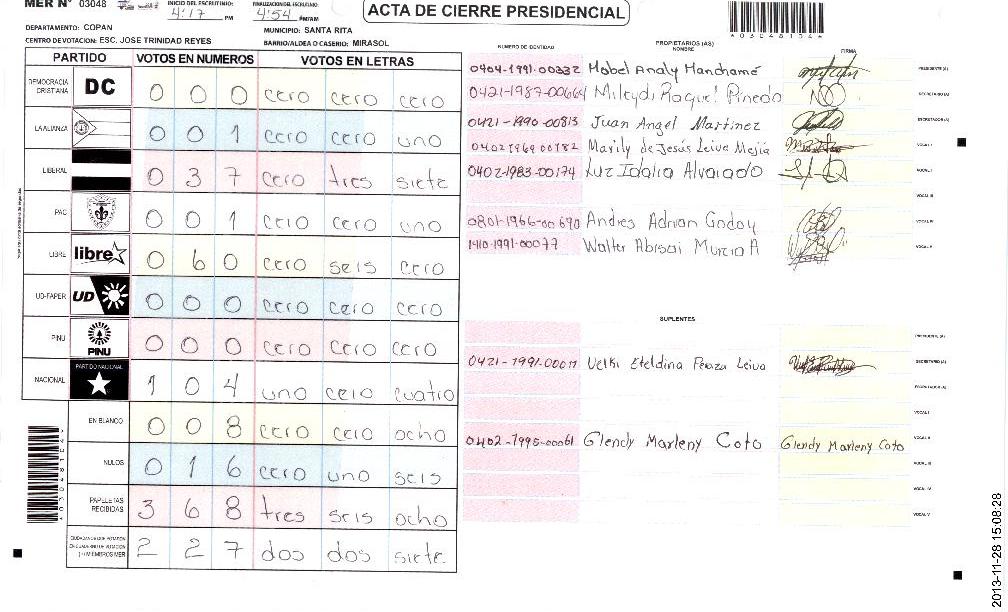 MER N° 03048
INICIO DEL ESCRUTINIO: 4:17 PM
FINALIZACION DEL ESCRUTINIO: 4:54 PM/AM
ACTA DE CIERRE PRESIDENCIAL
DEPARTAMENTO: COPAN
MUNICIPIO: SANTA RITA
CENTRO DE VOTACION: ESC. JOSE TRINIDAD REYES
BARRIO/ALDEA O CASERIO: MIRASOL
PARTIDO VOTOS EN NUMEROS VOTOS EN LETRAS
DEMOCRACIA CRISTIANA DC 0 0 0 cero cero cero
LA ALIANZA 0 0 1 cero cero uno
LIBERAL 0 3 7 cero tres siete
PAC 0 0 1 cero cero uno
LIBRE libre 0 6 0 cero seis cero
UD-FAPER UD 0 0 0 cero cero cero
PINU PINU 0 0 0 cero cero cero
NACIONAL PARTIDO NACIONAL 1 0 4 uno cero cuatro
EN BLANCO 0 0 8 cero cero ocho
NULOS 0 1 6 cero uno seis
PAPELETAS RECIBIDAS 3 6 8 tres seis ocho
2 2 7 dos dos siete
NUMERO DE IDENTIDAD PROPIETARIOS (AS) NOMBRE FIRMA
0404-1991-00332 Mabel Analy Manchamé PRESIDENTE (A)
0421-1987-00664 Mileydi Raquel Pineda SECRETARIO (A)
0421-1990-00813 Juan Angel Martinez ESCRUTADOR (A)
0402 1969 00182 Marily de Jesús Leiva Mejía VOCAL I
0402-1983-00174 Luz Idalia Alvarado VOCAL II
VOCAL III
0801-1966-00690 Andres Adrian Godoy VOCAL IV
1410-1991-00077 Walter Abisai Murcia A VOCAL V
SUPLENTES
PRESIDENTE (A)
0421-1991-00011 Velki Eteldina Peraza Leiva SECRETARIO (A)
ESCRUTADOR (A)
VOCAL I
0402-1995-00061 Glendy Marleny Coto Glendy Marleny Coto VOCAL II
VOCAL III
VOCAL IV
VOCAL V
2013-11-28 15:08:28